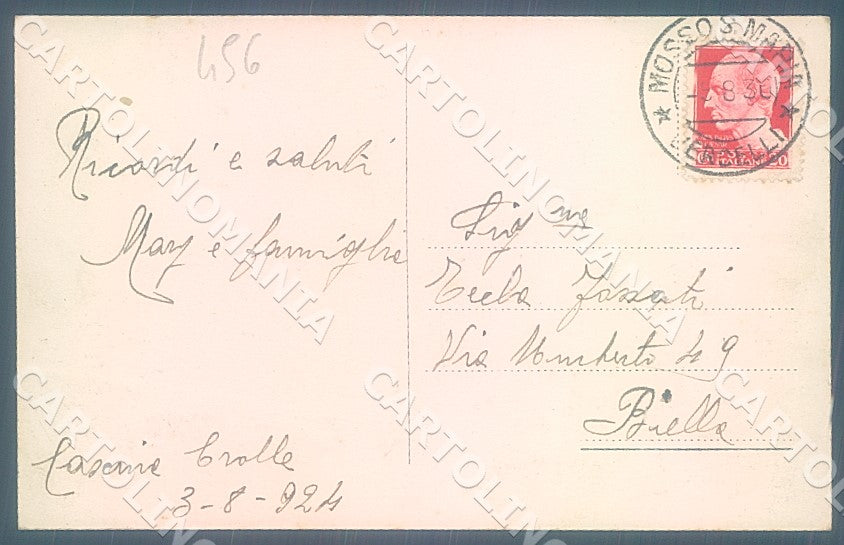 456
Ricordi e saluti
Mary e famiglia
Cascine Crolle
3-8-924
MOSSO S. MARIA
8 30
* VERCELLI *
20
Sig na
Tecla Fossati
Via Umberto 49
Biella
CARTOLINOMANIA
CARTOLINOMANIA
CARTOLINOMANIA
CARTOLINOMANIA
CARTOLINOMANIA